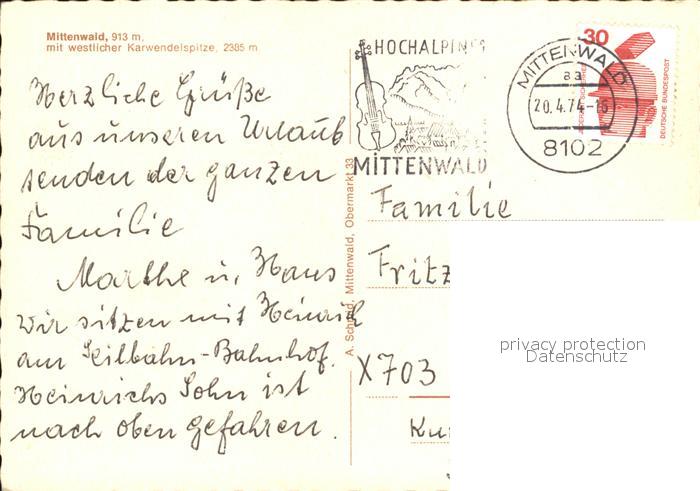 Mittenwald, 913 m,
mit westlicher Karwendelspitze, 2385 m
Herzliche Grüße
aus unseren Urlaub
senden der ganzen
Familie
Marthe u. Hans
wir sitzen mit Heinrich
am Seilbahn-Bahnhof.
Heinrichs Sohn ist
nach oben gefahren.
A. Schmid, Mittenwald, Obermarkt 33
HOCHALPINES
MITTENWALD
MITTENWALD
aa
20.4.74-16
8102
30
DEUTSCHE BUNDESPOST
Familie
Fritz
X703
privacy protection
Datenschutz